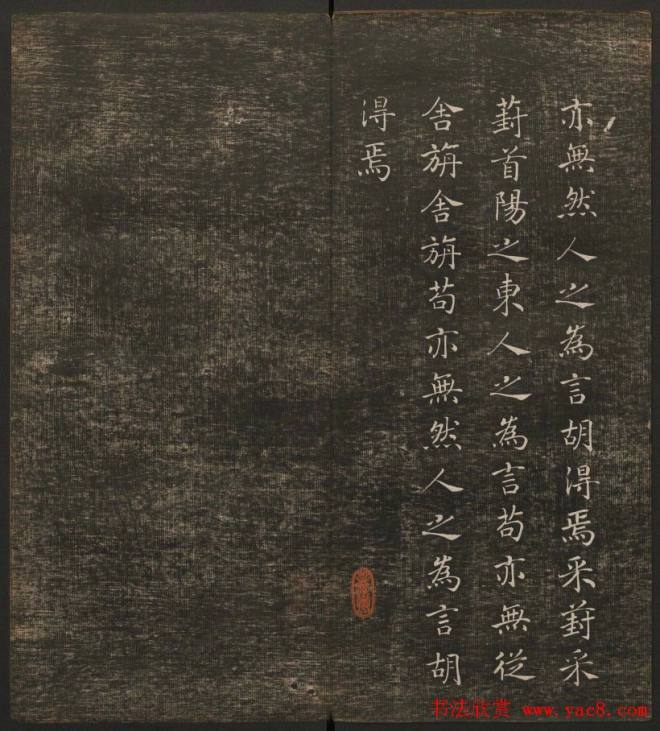 亦無然人之為言胡得焉采葑采
葑首陽之東人之為言苟亦無從
舍旃舍旃苟亦無然人之為言胡
得焉
书法欣赏 www.yac8.com